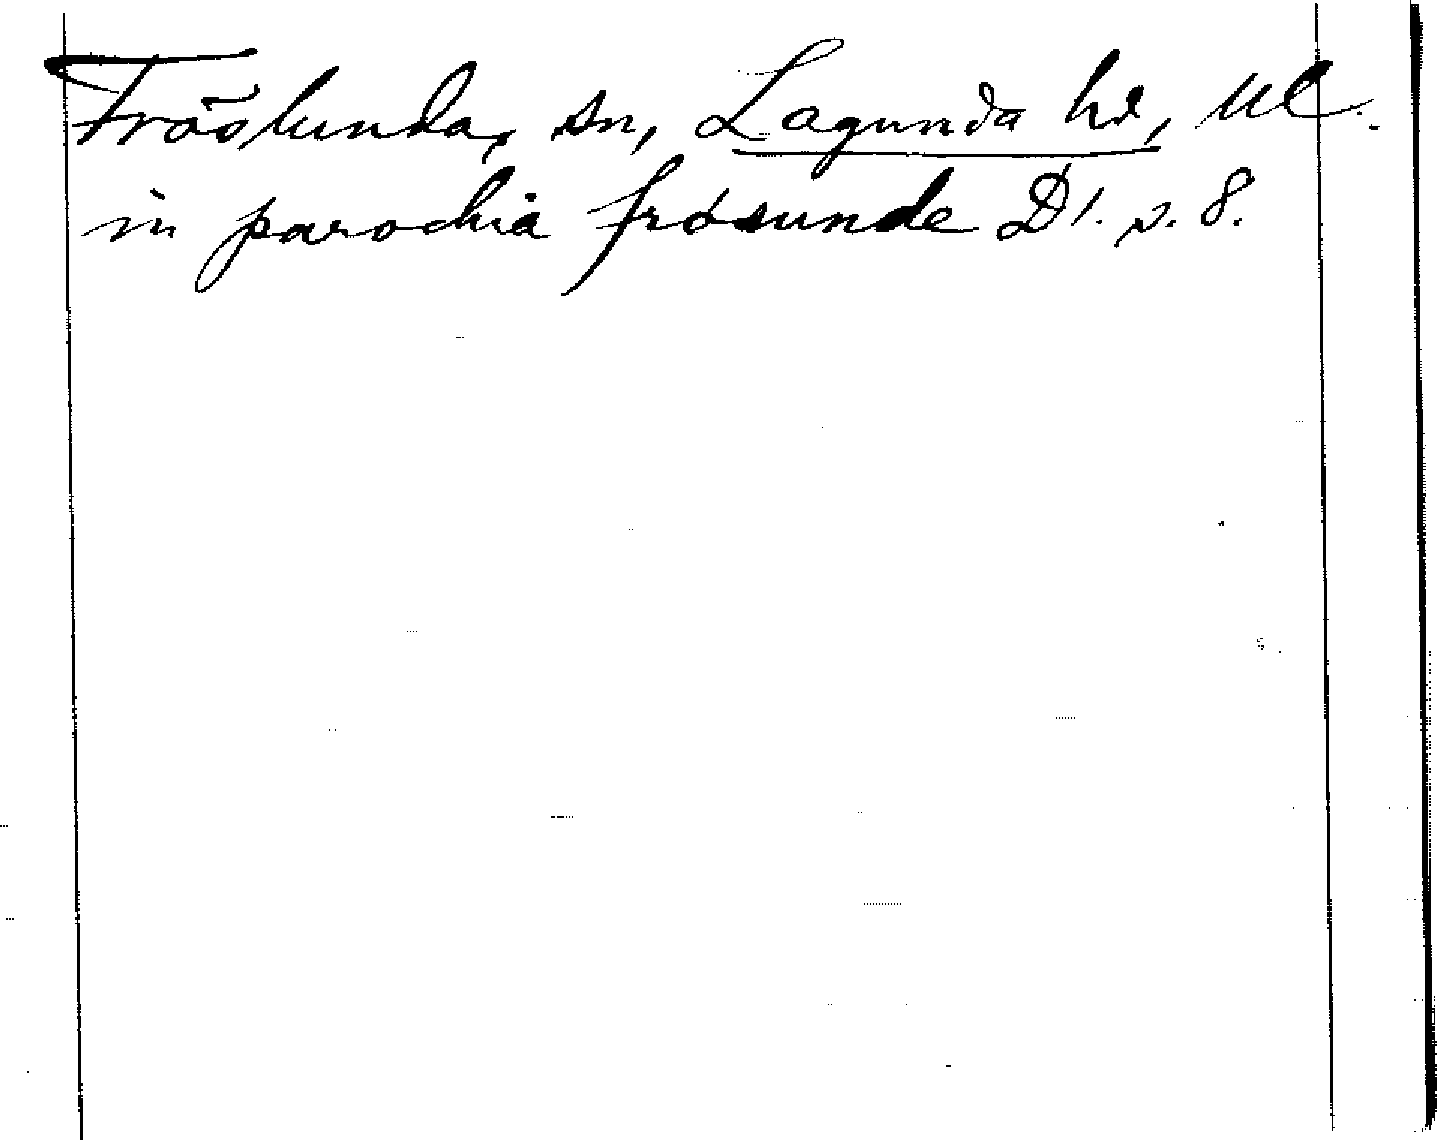 Fröslunda, sn, Lagunda hd, Ul.
in parochia frösunde D1. s. 8.